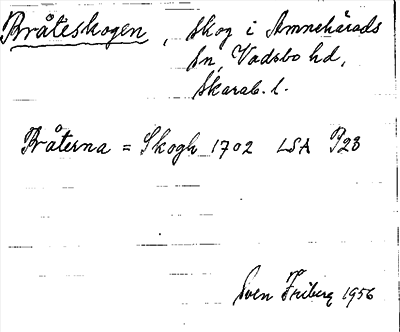 Bråteskogen, Skog i Amnehärads
sn, Vadsbo hd,
Skarab. l.
Bråterna = Skogh 1702 LSA P23
Sven Friberg 1956